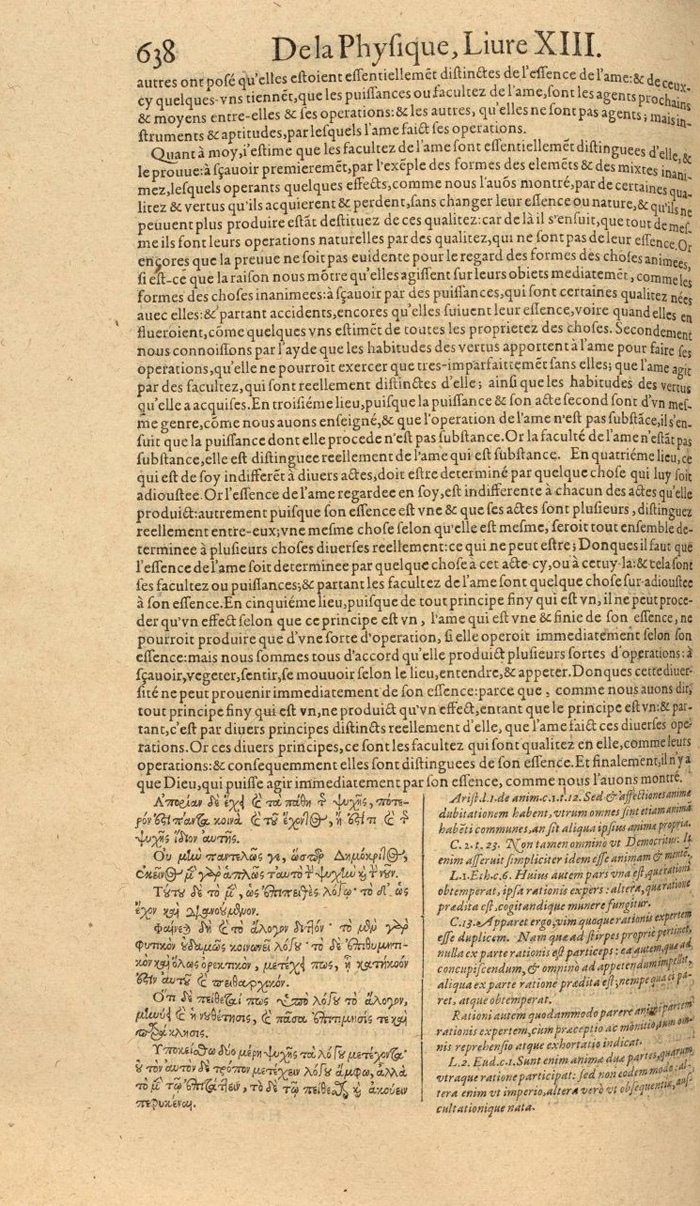 638 De la Physique, Liure XIII.
autres ont posé qu'elles estoient essentiellemēt distinctes de l'essence de l'ame: & de ceux-
cy quelques-vns tiennēt, que les puissances ou facultez de l'ame, sont les agents prochains
& moyens entre-elles & ses operations: & les autres, qu'elles ne sont pas agents; mais in-
struments & aptitudes, par lesquels l'ame faict ses operations.
Quant à moy, i'estime que les facultez de l'ame sont essentiellemēt distinguees d'elle, &
le prouue: à sçauoir premieremēt, par l'exēple des formes des elemēts & des mixtes inani-
mez, lesquels operants quelques effects, comme nous l'auōs montré, par de certaines qua-
litez & vertus qu'ils acquierent & perdent, sans changer leur essence ou nature, & qu'ils ne
peuuent plus produire estāt destituez de ces qualitez: car de là il s'ensuit, que tout de mes-
me ils font leurs operations naturelles par des qualitez, qui ne sont pas de leur essence. Or
encores que la preuue ne soit pas euidente pour le regard des formes des choses animees,
si est-ce que la raison nous mōtre qu'elles agissent sur leurs obiets mediatemēt, comme les
formes des choses inanimees: à sçauoir par des puissances, qui sont certaines qualitez nées
auec elles: & partant accidents, encores qu'elles suiuent leur essence, voire quand elles en
flueroient, cōme quelques vns estimēt de toutes les proprietez des choses. Secondement
nous connoissons par l'ayde que les habitudes des vertus apportent à l'ame pour faire ses
operations, qu'elle ne pourroit exercer que tres-imparfaittemēt sans elles; que l'ame agit
par des facultez, qui sont reellement distinctes d'elle; ainsi que les habitudes des vertus
qu'elle a acquises. En troisiéme lieu, puisque la puissance & son acte second sont d'vn mes-
me genre, cōme nous auons enseigné, & que l'operation de l'ame n'est pas substāce, il s'en-
suit que la puissance dont elle procede n'est pas substance. Or la faculté de l'ame n'estāt pas
substance, elle est distinguee reellement de l'ame qui est substance. En quatriéme lieu, ce
qui est de soy indifferēt à diuers actes, doit estre determiné par quelque chose qui luy soit
adioustee. Or l'essence de l'ame regardee en soy, est indifferente à chacun des actes qu'elle
produict: autrement puisque son essence est vne & que ses actes sont plusieurs, distinguez
reellement entre-eux; vne mesme chose selon qu'elle est mesme, seroit tout ensemble de-
terminee à plusieurs choses diuerses reellement: ce qui ne peut estre; Donques il faut que
l'essence de l'ame soit determinee par quelque chose à cet acte-cy, ou à cetuy-la: & tela sont
ses facultez ou puissances; & partant les facultez de l'ame sont quelque chose sur-adioustee
à son essence. En cinquiéme lieu, puisque de tout principe finy qui est vn, il ne peut proce-
der qu'vn effect selon que ce principe est vn, l'ame qui est vne & finie de son essence, ne
pourroit produire que d'vne sorte d'operation, si elle operoit immediatement selon son
essence: mais nous sommes tous d'accord qu'elle produict plusieurs sortes d'operations: à
sçauoir, vegeter, sentir, se mouuoir selon le lieu, entendre, & appeter. Donques cette diuer-
sité ne peut prouenir immediatement de son essence: parce que, comme nous auons dit,
tout principe finy qui est vn, ne produict qu'vn effect, entant que le principe est vn: & par-
tant, c'est par diuers principes distincts reellement d'elle, que l'ame faict ces diuerses ope-
rations. Or ces diuers principes, ce sont les facultez qui sont qualitez en elle, comme leurs
operations: & consequemment elles sont distinguees de son essence. Et finalement, il n'y a
que Dieu, qui puisse agir immediatement par son essence, comme nous l'auons montré.
Ἀπορίαν δὲ ἔχει καὶ τὰ πάθη τῆς ψυχῆς, πότε-
ρόν ἐστι πάντα κοινὰ καὶ τοῦ ἔχοντος, ἢ ἐστί τι καὶ τῆς
ψυχῆς ἴδιον αὐτῆς.
Οὐ μὴν παντελῶς γε, ὥσπερ Δημόκριτος,
ἐκεῖνος μὲν γὰρ ἁπλῶς ταυτὸ τὴν ψυχὴν καὶ τὸν νοῦν.
Τούτου δὲ τὸ μὲν, ὡς ἐπιπειθὲς λόγῳ· τὸ δ', ὡς
ἔχον καὶ διανοούμενον.
Φαίνεται δὴ καὶ τὸ ἄλογον διττόν· τὸ μὲν γὰρ
φυτικὸν οὐδαμῶς κοινωνεῖ λόγου· τὸ δὲ ἐπιθυμητι-
κὸν καὶ ὅλως ὀρεκτικὸν, μετέχει πως, ᾗ κατήκοόν
ἐστιν αὐτοῦ καὶ πειθαρχικόν.
Ὅτι δὲ πείθεταί πως ὑπὸ λόγου τὸ ἄλογον,
μηνύει καὶ ἡ νουθέτησις, καὶ πᾶσα ἐπιτίμησίς τε καὶ
παράκλησις.
Ὑποκείσθω δύο μέρη ψυχῆς τὰ λόγου μετέχοντα·
οὐ τὸν αὐτὸν δὲ τρόπον μετέχειν λόγου ἄμφω, ἀλλὰ
τὸ μὲν τῷ ἐπιτάττειν, τὸ δὲ τῷ πείθεσθαι καὶ ἀκούειν
πεφυκέναι.
Arist. l.1. de anim. c.1. t.12. Sed & affectiones animæ
dubitationem habent, vtrum omnes sint etiam animā
habēti communes, an sit aliqua ipsius animæ propria.
C. 2. t. 23. Non tamen omnino vt Democritus: Is
enim asseruit simpliciter idem esse animam & mentē.
L.1. Eth. c.6. Huius autem pars vna est quæ rationi
obtemperat, ipsa rationis expers: altera, quæ ratione
prædita est, cogitandique munere fungitur.
C.13. Apparet ergo, vim quoque rationis expertem
esse duplicem. Nam quæ ad stirpes proprie pertinet,
nulla ex parte rationis est particeps: ea autem, quæ ad
concupiscendum, & omnino ad appetendum impellit,
aliqua ex parte ratione prædita est, nempe qua ei pa-
ret, atque obtemperat.
Rationi autem quodammodo parere animi partem
rationis expertem, cum præceptio ac monitio, tum om-
nis reprehensio atque exhortatio indicat.
L.2. Eud. c.1. Sunt enim animæ duæ partes, quarum
vtraque ratione participat: sed non eodem modo: al-
tera enim vt imperio, altera verò vt obsequentia, aus-
cultationique nata.